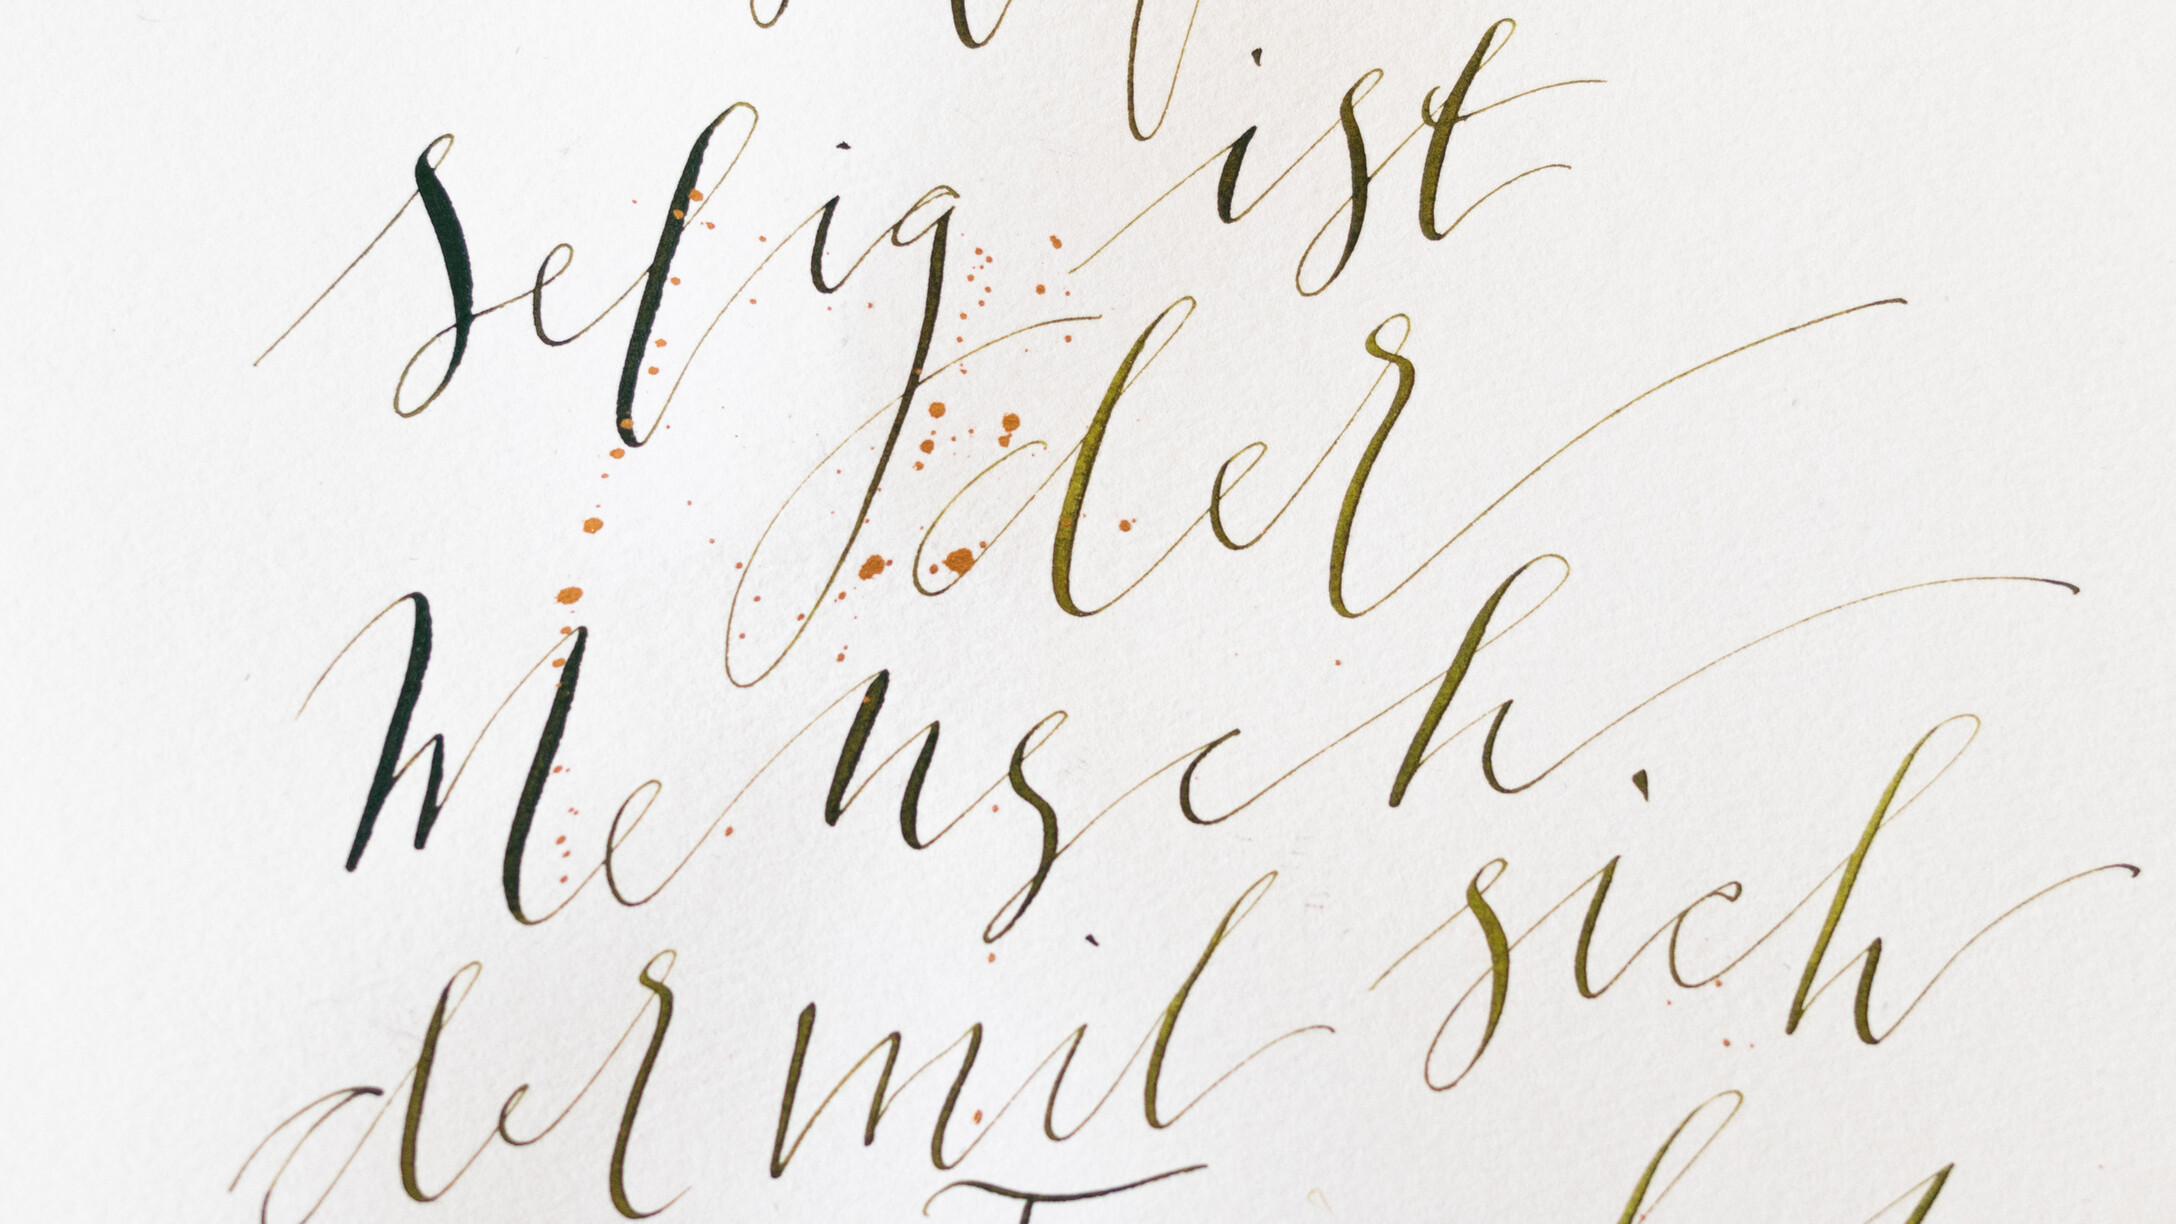 selig ist
der
Mensch
der mit sich